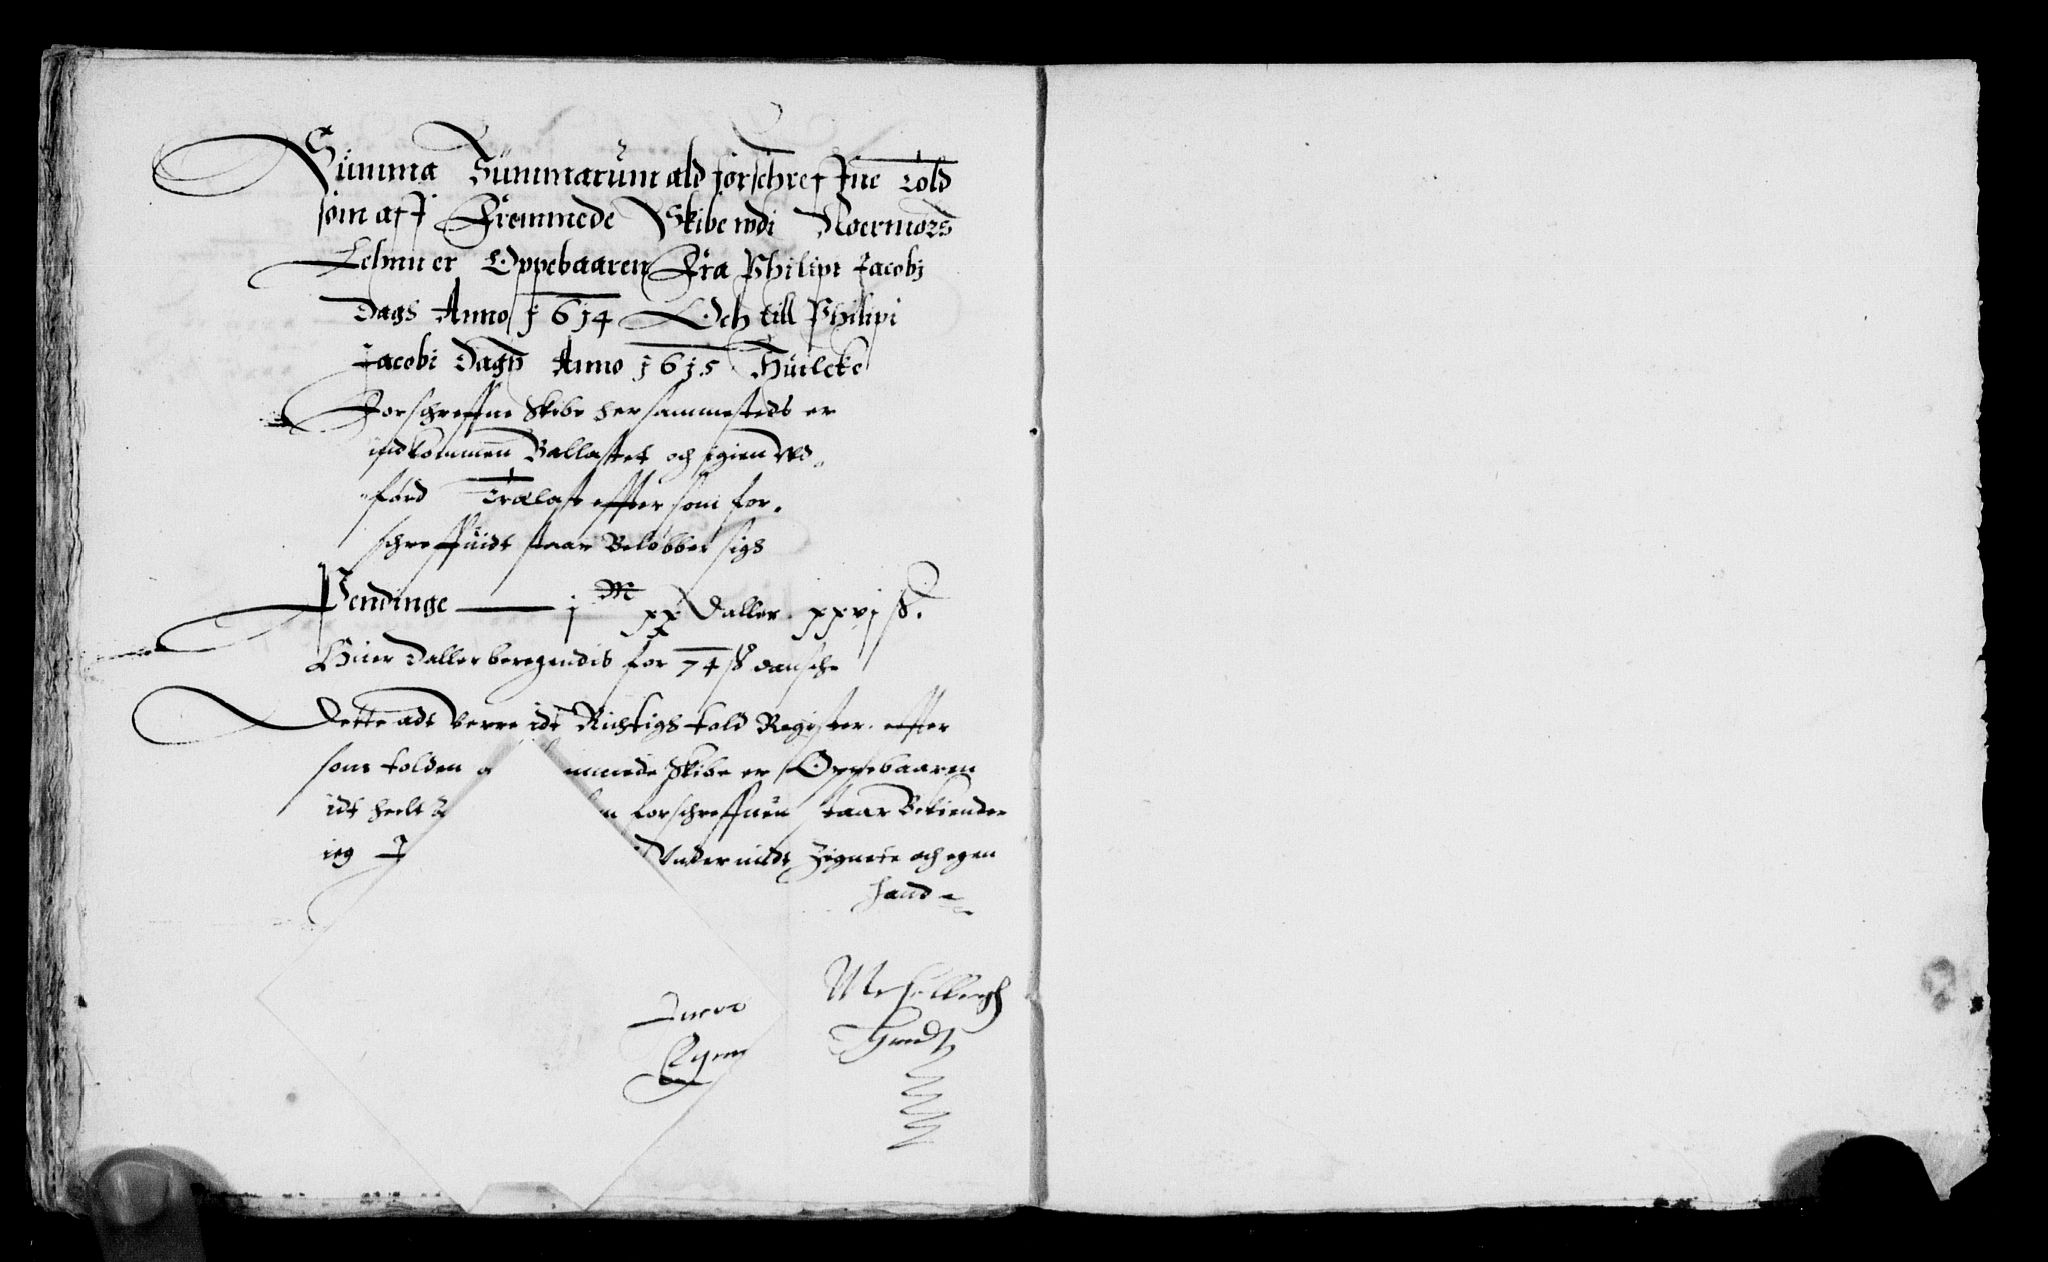 Summa Summarum ald forschreffne Told
som aff Fremmede Skibe udi Noermørs
Lehnn er Oppebaaren Fra Philipi Jacobj
Dags Anno 1614 Och till Philipi
Jacobi Dags Anno 1615 Huilcke
Forschreffne Skibe her sammesteds er
indkommen Ballastet och igien vd
förd Trælast effter som for
schreffuidt staar Beløbber sigh
Pendinge j M xx Daller xxvj ß.
Huer Daller beregendis for 74 ß dansche
Dette adt verre idt Richtigh told Register effter
som tolden mmede Skibe er Oppebaaren
idt heelt n forschreffuen taar Bekiender
ieg Vnder mit Zignete och egen
hand